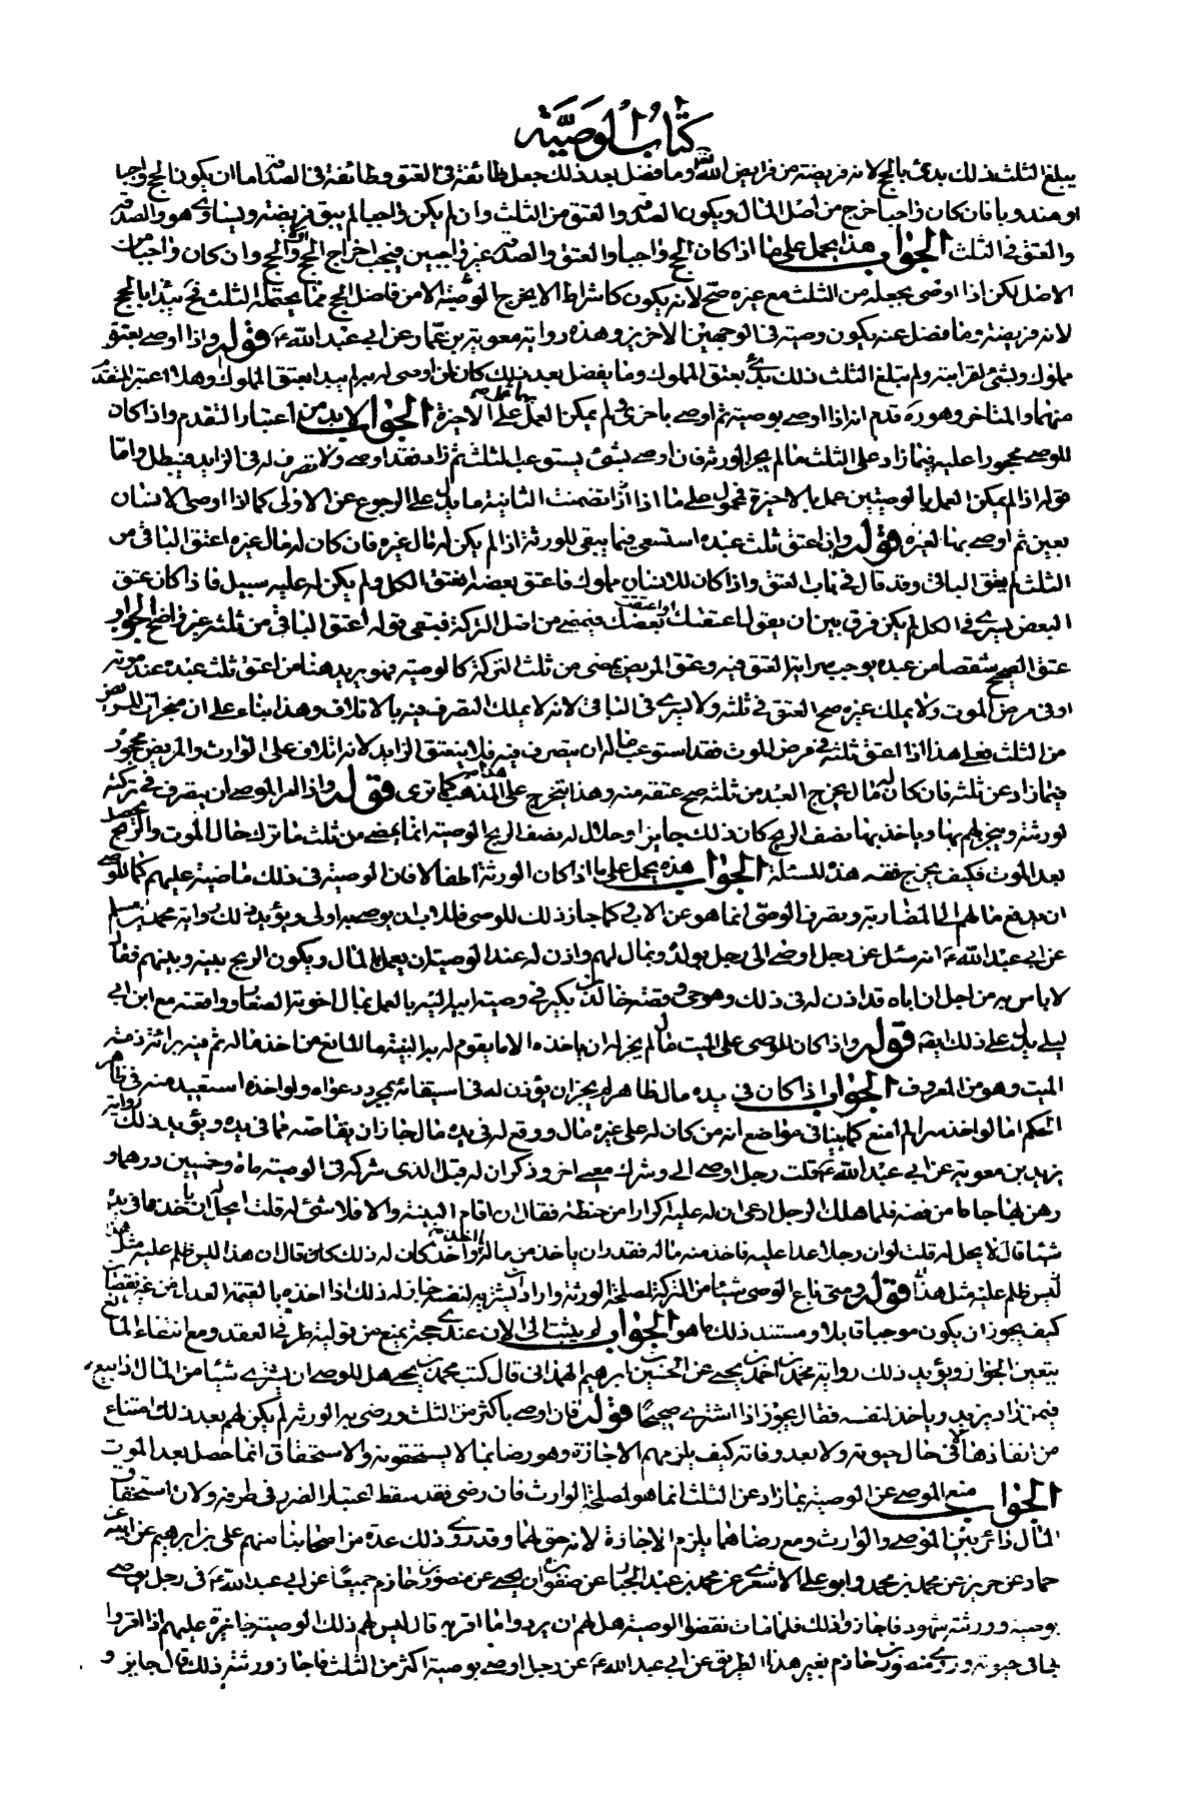 كتاب الوصية
يبلغ الثلث ذلك بدئ بالحج لانه فريضة من فرايض الله وما فضل بعد ذلك جعل طائفة في العتق وطائفة في الصدقة اما ان يكون الحج واجبا
او مندوبا فان كان واجبا خرج من اصل المال ويكون الصدقة والعتق من الثلث وان لم يكن واجبا لم يبق فريضة ويتساوى هو والصدقة
والعتق في الثلث الجواب هذا يحمل على ما اذا كان الحج واجبا والعتق والصدقة غير واجبين فيجب اخراج الحج والحج وان كان واجبا من
الاصل لكن اذا اوصى بجعله من الثلث مع غيره صح لانه يكون كاشتراط الا يخرج الوصية الا من فاضل الحج مما يحتمله الثلث فح يبتدا بالحج
لانه فريضة وما فضل عنه يكون وصيته في الوجهين الاخرين وهذه رواية معوية بن عمار عن ابي عبد الله ع قوله واذا اوصى بعتق
مملوك وبشئ لقرابته ولم يبلغ الثلث ذلك بدئ بعتق المملوك وما يفضل بعد ذلك كان لمن اوصى له به لم يبدا بعتق المملوك وهلا اعتبر المتقدم
منهما والمتاخر وهوره قدم انه اذا اوصى بوصية ثم اوصى باخرى ولم يمكن العمل بهما عمل على الاخيرة الجواب لا بد من اعتبار التقدم واذا كان
للموصى محجورا عليه فيما زاد على الثلث ما لم يجز الورثة فان اوصى بشئ يستوعب الثلث ثم زاد فقد اوصى ولا تصرف له في الزايد فيبطل واما
قوله اذا لم يمكن العمل بالوصيتين عمل بالاخيرة فمحمول على ما اذا تضمنت الثانية ما يدل على الرجوع عن الاولى كما اذا اوصى لانسان
بعين ثم اوصى بها لغيره قوله وان اعتق ثلث عبده استسعى فيما يبقى للورثة اذا لم يكن له مال غيره فان كان له مال غيره اعتق الباقي من
الثلث لم يعتق الباقي وقد قال في باب العتق واذا كان للانسان مملوك فاعتق بعضه انعتق الكل ولم يكن له عليه سبيل فاذا كان عتق
البعض يسرى في الكل لم يكن فرق بين ان يقول اعتقتك او اعتقت بعضك فيمضى من اصل التركة فبقى قوله اعتق الباقي من ثلثه غير واضح الجواب
عتق الصحيح شقصا من عبده يوجب سراية العتق فيه وعتق المريض يمضى من ثلث التركة كالوصية فهو يريد هنا من اعتق ثلث عبده عند موته
او في مرض الموت ولا يملك غيره صح العتق في ثلثه ولا يسرى في الباقي لانه لا يملك التصرف فيه بالاتلاف وهذا بناء على ان منجزات المريض
من الثلث فعلى هذا اذا اعتق ثلثه في مرض الموت فقد استوعب ما له ان يتصرف فيه فلا ينعتق الزايد لانه اتلاف على الوارث والمريض محجور
فيما زاد عن ثلثه فان كان له مال يخرج العبد من ثلثه صح عتقه منه وهذا يتخرج على المذهب كما ترى قوله واذا امر الموصى ان يتصرف في تركته
لورثته ويتجر لهم بها وياخذ بها نصف الربح كان ذلك جايزا وحلال له نصف الربح الوصية انما يمضى من ثلث ما ترك حال الموت والربح يحصل
بعد الموت فكيف يخرج فقه هذه المسئلة الجواب هذه يحمل على ما اذا كان الورثة اطفالا فان الوصية في ذلك ماضية عليهم كما للوصى
ان يدفع مالهم الى المضاربة وتصرف الوصى انما هو عن الاب فكما جاز ذلك للوصى فللاب ان يوصى به اولى ويؤيد ذلك رواية محمد بن مسلم
عن ابي عبد الله ع انه سئل عن رجل اوصى الى رجل بولده وبمال لهم واذن له عند الوصية ان يعمل بالمال ويكون الربح بينه وبينهم فقال
لا باس به من اجل ان اباه قد اذن له في ذلك وهو حى وقصة خالد بن بكير في وصية ابيه اليه بالعمل بمال اخوته الصغار واقعته مع ابن ابي
ليلى يدل على ذلك ايضا قوله واذا كان للوصى على الميت مال لم يجز له ان ياخذه الا ما يقوم له به البينة ما المانع من اخذ ماله ثم فيه برائة ذمة
الميت وهو من المعروف الجواب اذا كان في يده مال ظاهر لم يجز ان يؤذن له في استيفائه بمجرد دعواه ولو اخذه استعيد منه في ظاهر
الحكم اما لو اخذ سرا لم امنع كما بينا في مواضع انه من كان له على غيره مال ووقع له في يده مال جاز ان يقاصه مما في يده ويؤيد ذلك رواية
بريد بن معوية عن ابي عبد الله ع قلت رجل اوصى الى وشرك معى اخر وذكر ان له قبل الذي شركه في الوصية ماة وخمسين درهما و
رهن بها جاما من فضة فلما هلك الرجل ادعى ان له عليه اكرارا من حنطة فقال ان اقام البينة والا فلا شئ له قلت ايحل له ان ياخذ مما في يده
شيئا قال لا يحل له قلت لو ان رجلا عدا عليه فاخذ منه ماله فقدر ان ياخذ من ماله ما اخذ منه كان له ذلك قال ان هذا ليس ظلم عليه مثل هذا
ليس ظلم عليه مثل هذا قوله ومتى باع الوصى شيئا من التركة لمصلحة الورثة واراد ان يشتريه لنفسه جاز له ذلك اذا اخذه بالقيمة العدل من غير نقصان
كيف يجوز ان يكون موجبا قابلا ومستند ذلك ما هو الجواب لم يثبت الى الان عندى حجة يمنع من تولية طرفى العقد ومع انتفاء المانع
يتعين الجواز ويؤيد ذلك رواية محمد بن احمد بن يحيى عن الحسين بن ابرهيم الهمداني قال كتب محمد بن يحيى هل للوصى ان يشترى شيئا من المال اذا بيع
فيمن زاد يزيد وياخذ لنفسه فقال يجوز اذا اشترى صحيحا قوله فان اوصى باكثر من الثلث ورضى به الورثة لم يكن لهم بعد ذلك امتناع
من انفاذها لا في حال حيوته ولا بعد وفاته كيف يلزمهم الاجازة وهو رضا بما لا يستحقونه والاستحقاق انما حصل بعد الموت
الجواب منع الموصى عن الوصية بما زاد عن الثلث انما هو لمصلحة الوارث فان رضى فقد سقط اعتبار الضرر في طرفه ولان استحقاق
المال دائر بين الموصى والوارث ومع رضاهما يلزم الاجازة لانه حق لهما وقد روى ذلك عدة من اصحابنا منهم على بن ابرهيم عن ابيه عن
حماد عن حريز عن محمد بن محمد وابو على الاشعرى عن محمد بن عبد الجبار عن صفوان بن يحيى عن منصور بن حازم جميعا عن ابي عبد الله ع في رجل يوصى
بوصية وورثته شهود فاجازوا ذلك فلما مات نقضوا الوصية هل لهم ان يردوا ما اقروا به قال ليس لهم ذلك الوصية جايزة عليهم اذا اقروا
بها في حيوته وروى منصور بن حازم بغير هذا الطريق عن ابي عبد الله ع عن رجل اوصى بوصية اكثر من الثلث فاجاز ورثته ذلك قال جايز و